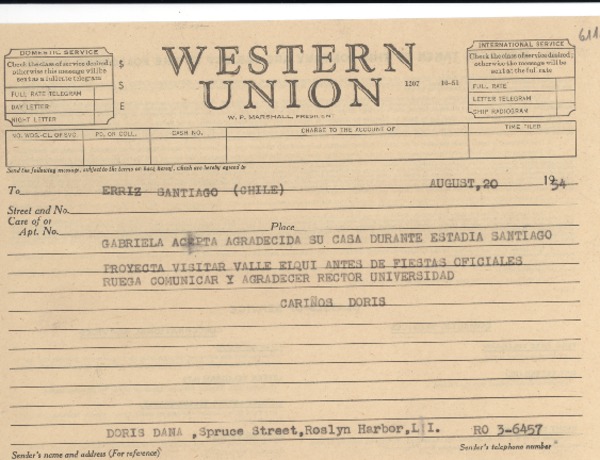 611
DOMESTIC SERVICE
Check the class of service desired;
otherwise this message will be
sent as a full rate telegram
FULL RATE TELEGRAM
DAY LETTER
NIGHT LETTER
$
S
E
WESTERN
UNION
1207 10-51
W. P. MARSHALL, PRESIDENT
INTERNATIONAL SERVICE
Check the class of service desired;
otherwise this message will be
sent at the full rate
FULL RATE
LETTER TELEGRAM
SHIP RADIOGRAM
NO. WDS.-CL. OF SVC. PD. OR COLL. CASH NO. CHARGE TO THE ACCOUNT OF TIME FILED
Send the following message, subject to the terms on back hereof, which are hereby agreed to
To ERRIZ SANTIAGO (CHILE) AUGUST, 20 1954
Street and No.
Care of or
Apt. No. Place
GABRIELA ACEPTA AGRADECIDA SU CASA DURANTE ESTADIA SANTIAGO
PROYECTA VISITAR VALLE ELQUI ANTES DE FIESTAS OFICIALES
RUEGA COMUNICAR Y AGRADECER RECTOR UNIVERSIDAD
CARIÑOS DORIS
DORIS DANA ,Spruce Street,Roslyn Harbor,L I. RO 3-6457
Sender's name and address (For reference) Sender's telephone number